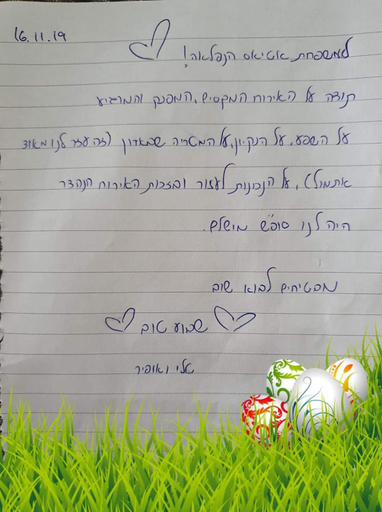 16.11.19
למשפחת אטיאס הנפלאה!
תודה על האירוח המקסים, המפנק והמרגיע
על השפע, על הנקיון, על המטריה שבארון (זה עזר לנו מאוד
אתמול), על הנכונות לעזור ובזכות האירוח הנהדר
היה לנו סופ״ש מושלם.
מבטיחים לבוא שוב
שבוע טוב
טלי ואופיר